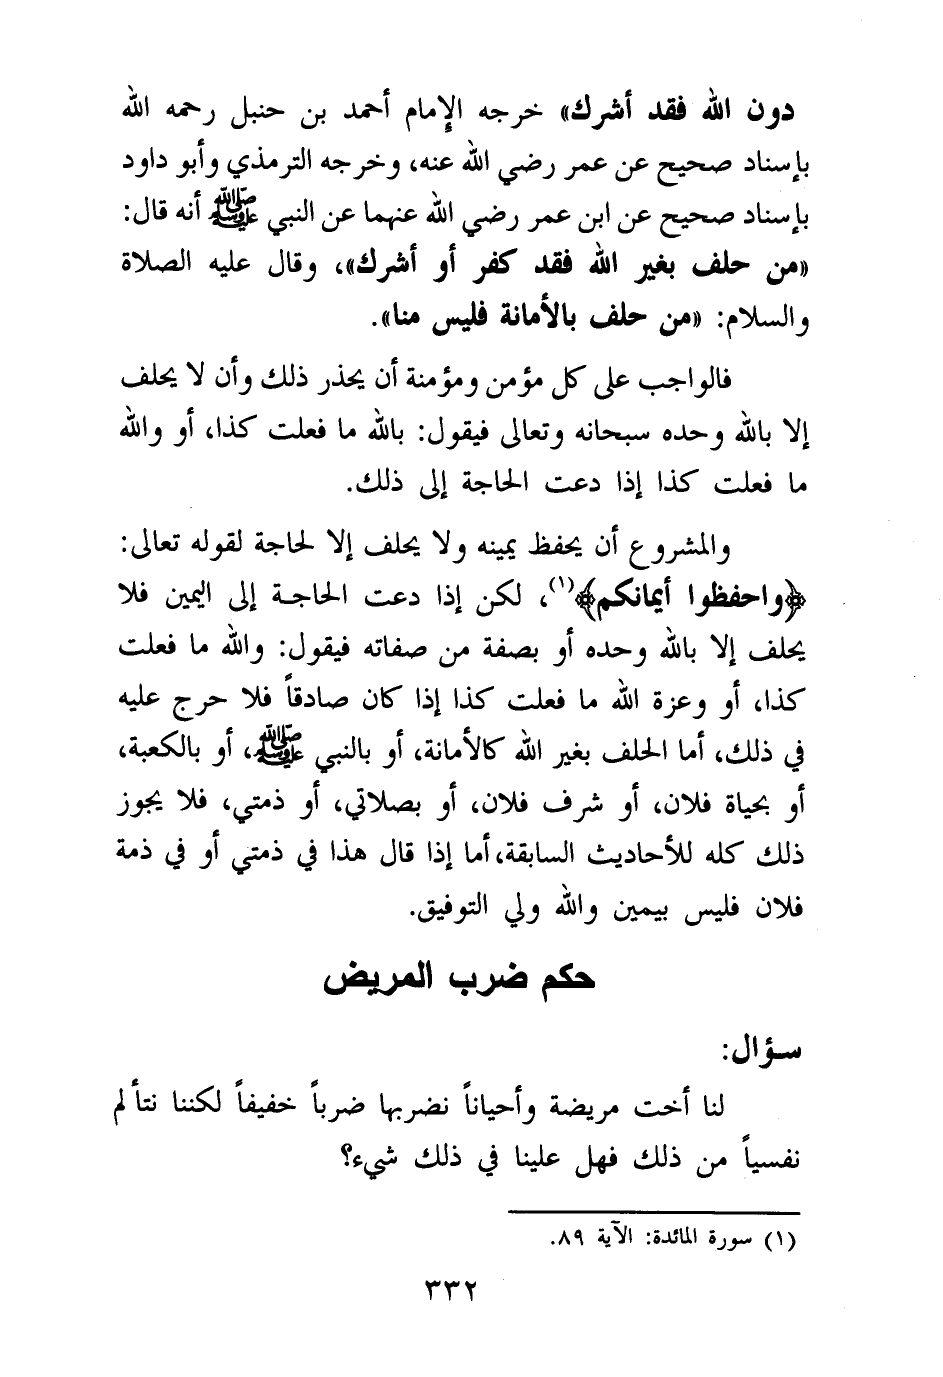 دون الله فقد أشرك» خرجه الإمام أحمد بن حنبل رحمه الله
بإسناد صحيح عن عمر رضي الله عنه، وخرجه الترمذي وأبو داود
بإسناد صحيح عن ابن عمر رضي الله عنهما عن النبي ﷺ أنه قال:
«من حلف بغير الله فقد كفر أو أشرك»، وقال عليه الصلاة
والسلام: «من حلف بالأمانة فليس منا».
فالواجب على كل مؤمن ومؤمنة أن يحذر ذلك وأن لا يحلف
إلا بالله وحده سبحانه وتعالى فيقول: بالله ما فعلت كذا، أو والله
ما فعلت كذا إذا دعت الحاجة إلى ذلك.
والمشروع أن يحفظ يمينه ولا يحلف إلا لحاجة لقوله تعالى:
﴿واحفظوا أيمانكم﴾(١)، لكن إذا دعت الحاجة إلى اليمين فلا
يحلف إلا بالله وحده أو بصفة من صفاته فيقول: والله ما فعلت
كذا، أو وعزة الله ما فعلت كذا إذا كان صادقاً فلا حرج عليه
في ذلك، أما الحلف بغير الله كالأمانة، أو بالنبي ﷺ، أو بالكعبة،
أو بحياة فلان، أو شرف فلان، أو بصلاتي، أو ذمتي، فلا يجوز
ذلك كله للأحاديث السابقة، أما إذا قال هذا في ذمتي أو في ذمة
فلان فليس بيمين والله ولي التوفيق.
حكم ضرب المريض
سؤال:
لنا أخت مريضة وأحياناً نضربها ضرباً خفيفاً لكننا نتألم
نفسياً من ذلك فهل علينا في ذلك شيء؟
(١) سورة المائدة: الآية ٨٩.
٣٣٢